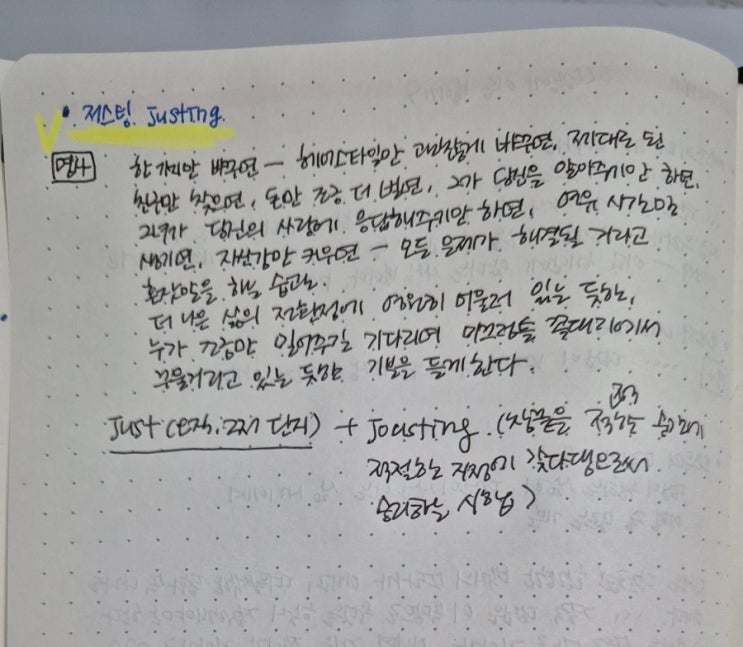 • 저스팅 Justing
명사 한 가지만 바꾸면 – 헤어스타일만 괜찮게 바꾸면, 제대로 된
친구만 찾으면, 돈만 조금 더 벌면, 그가 당신을 알아주기만 하면,
그녀가 당신의 사랑에 응답해주기만 하면, 여유 시간만
생기면, 자신감만 키우면 – 모든 문제가 해결될 거라고
혼잣말을 하는 습관.
더 나은 삶의 전환점에 영원히 머물러 있는 듯한,
누가 그냥 밀어주길 기다리며 미끄럼틀 꼭대기에서
꾸물거리고 있는 듯한 기분을 들게 한다.
Just(오직, 그저 단지) + Jousting (창끝을 정확한 순간에
적절한 지점에 갖다댐으로써
승리하는 시합)